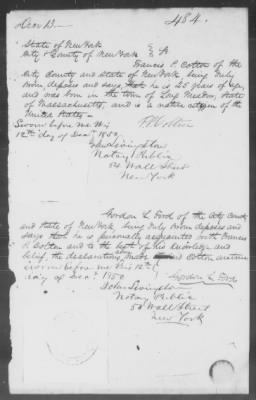 484.
State of New York
City & County of New York } ss
Francis P. Cotton of the
City County and State of New York being duly
sworn deposes and says that he is 25 years of age,
and was born in the town of Long Meadow, State
of Massachusetts, and is a native citizen of the
United States
Sworn before me this
12th day of Decr 1850
F P Cotton
John Livingston
Notary Public
54 Wall Street
New York
Gordon L Ford of the City County
and State of New York being duly sworn deposes and
says that he is personally acquainted with Francis
P. Cotton and to the best of his knowledge and
belief the declarations made Cotton are true
Sworn before me this 12th
day of Decr 1850
Gordon L Ford
John Livingston
Notary Public
54 Wall Street
New York